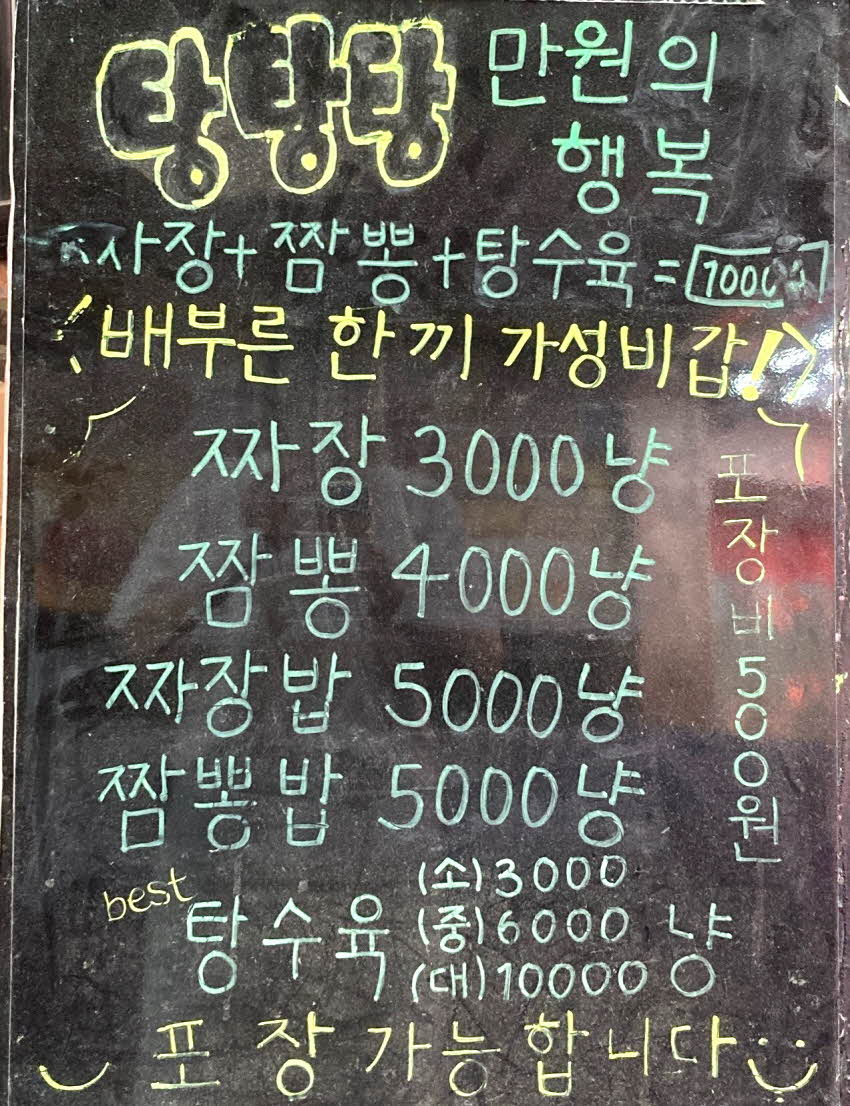 탕탕탕 만원의
행복
짜장+짬뽕+탕수육=
배부른 한끼 가성비갑!
짜장 3000냥
짬뽕 4000냥
짜장밥 5000냥
짬뽕밥 5000냥
best
탕수육 (소)3000
(중)6000 냥
(대)10000
포장비500원
포장가능합니다